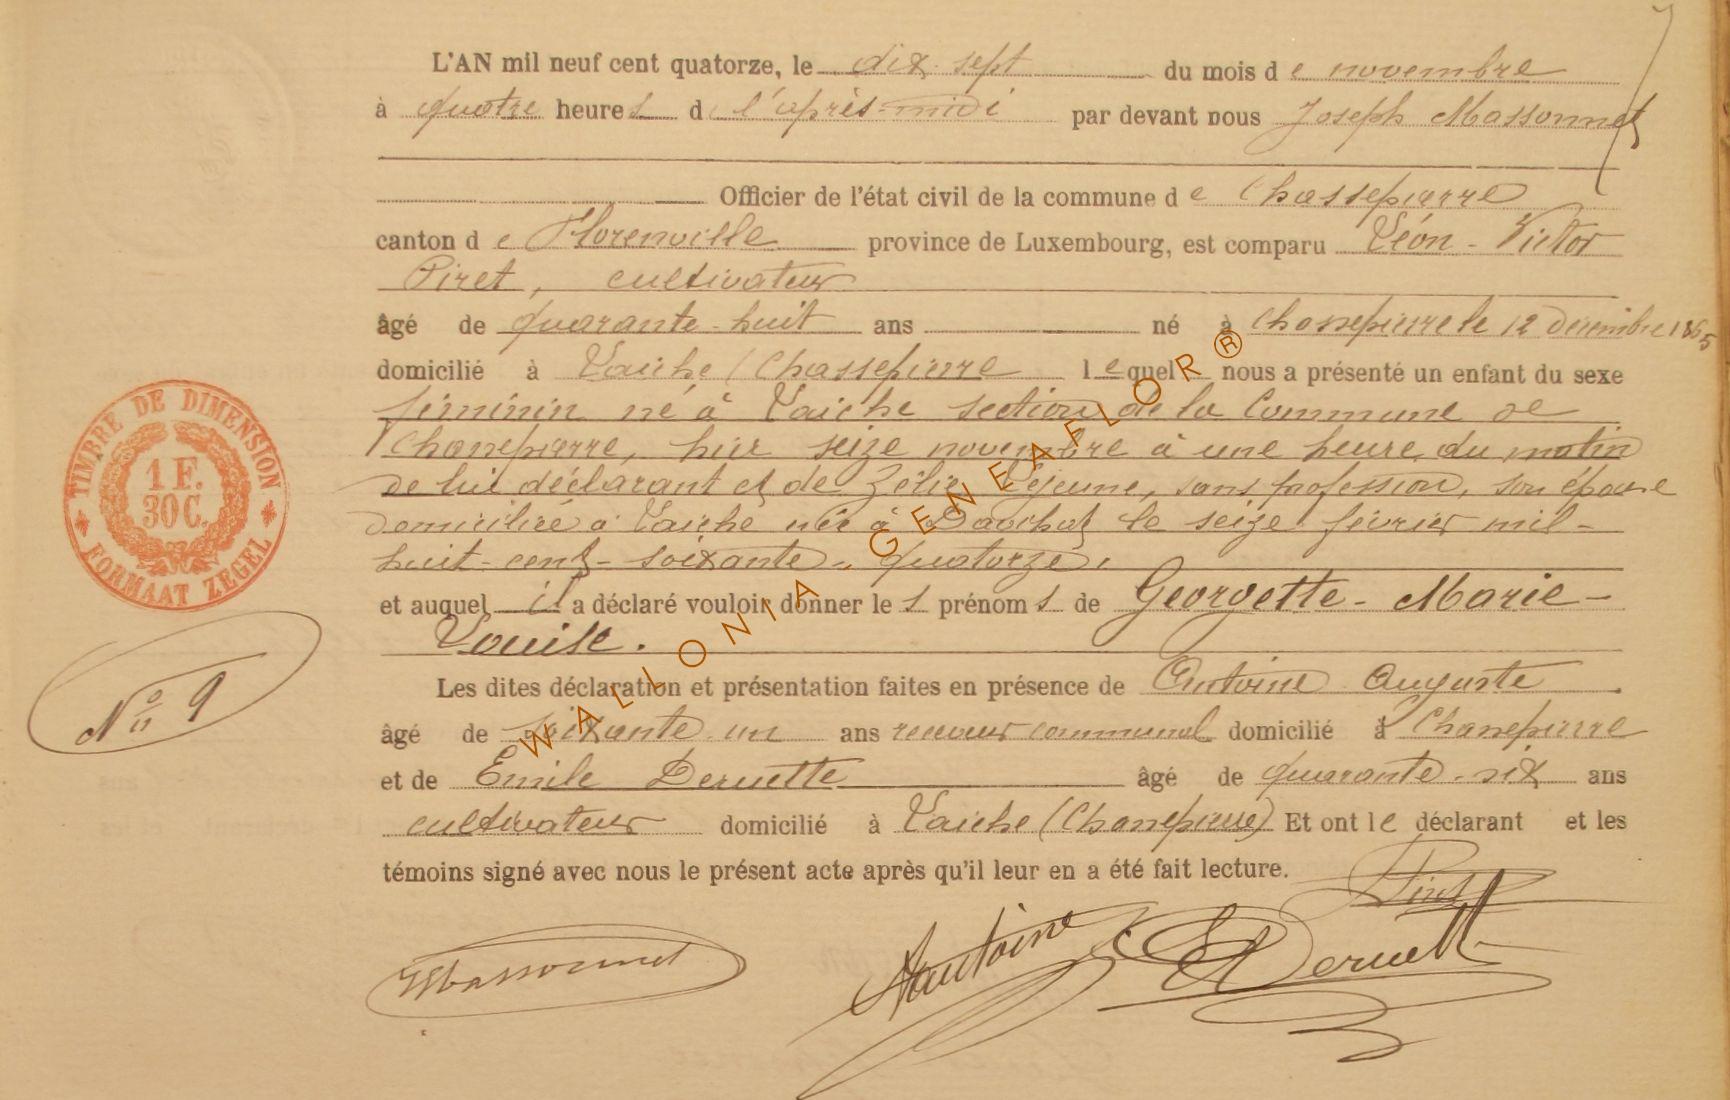 L'AN mil neuf cent quatorze, le dix sept du mois de novembre
à quatre heures de l'après-midi par devant nous Joseph Massonnet
Officier de l'état civil de la commune de Chassepierre
canton de Florenville province de Luxembourg, est comparu Léon-Victor
Piret, cultivateur
âgé de quarante-huit ans né à Chassepierre le 12 décembre 1865
domicilié à Laiche (Chassepierre lequel nous a présenté un enfant du sexe
féminin né à Laiche section de la Commune de
Chassepierre, hier seize novembre à une heure du matin
de lui déclarant et de Zélie Lejeune, sans profession, son épouse
domiciliée à Laiche née à le seize février mil-
huit-cent-soixante-quatorze.
et auquel il a déclaré vouloir donner les prénoms de Georgette-Marie-
Louise.
Les dites déclaration et présentation faites en présence de Antoine Auguste
âgé de soixante un ans receveur communal domicilié à Chassepierre
et de Emile Deruette âgé de quarante-six ans
cultivateur domicilié à Laiche (Chassepierre) Et ont le déclarant et les
témoins signé avec nous le présent acte après qu'il leur en a été fait lecture.
Piret
JMassonnet Aantoine EDeruette
TIMBRE DE DIMENSION
1 F.
30 C.
FORMAAT ZEGEL
No 9
WALLONIA GENEAFLOR ®